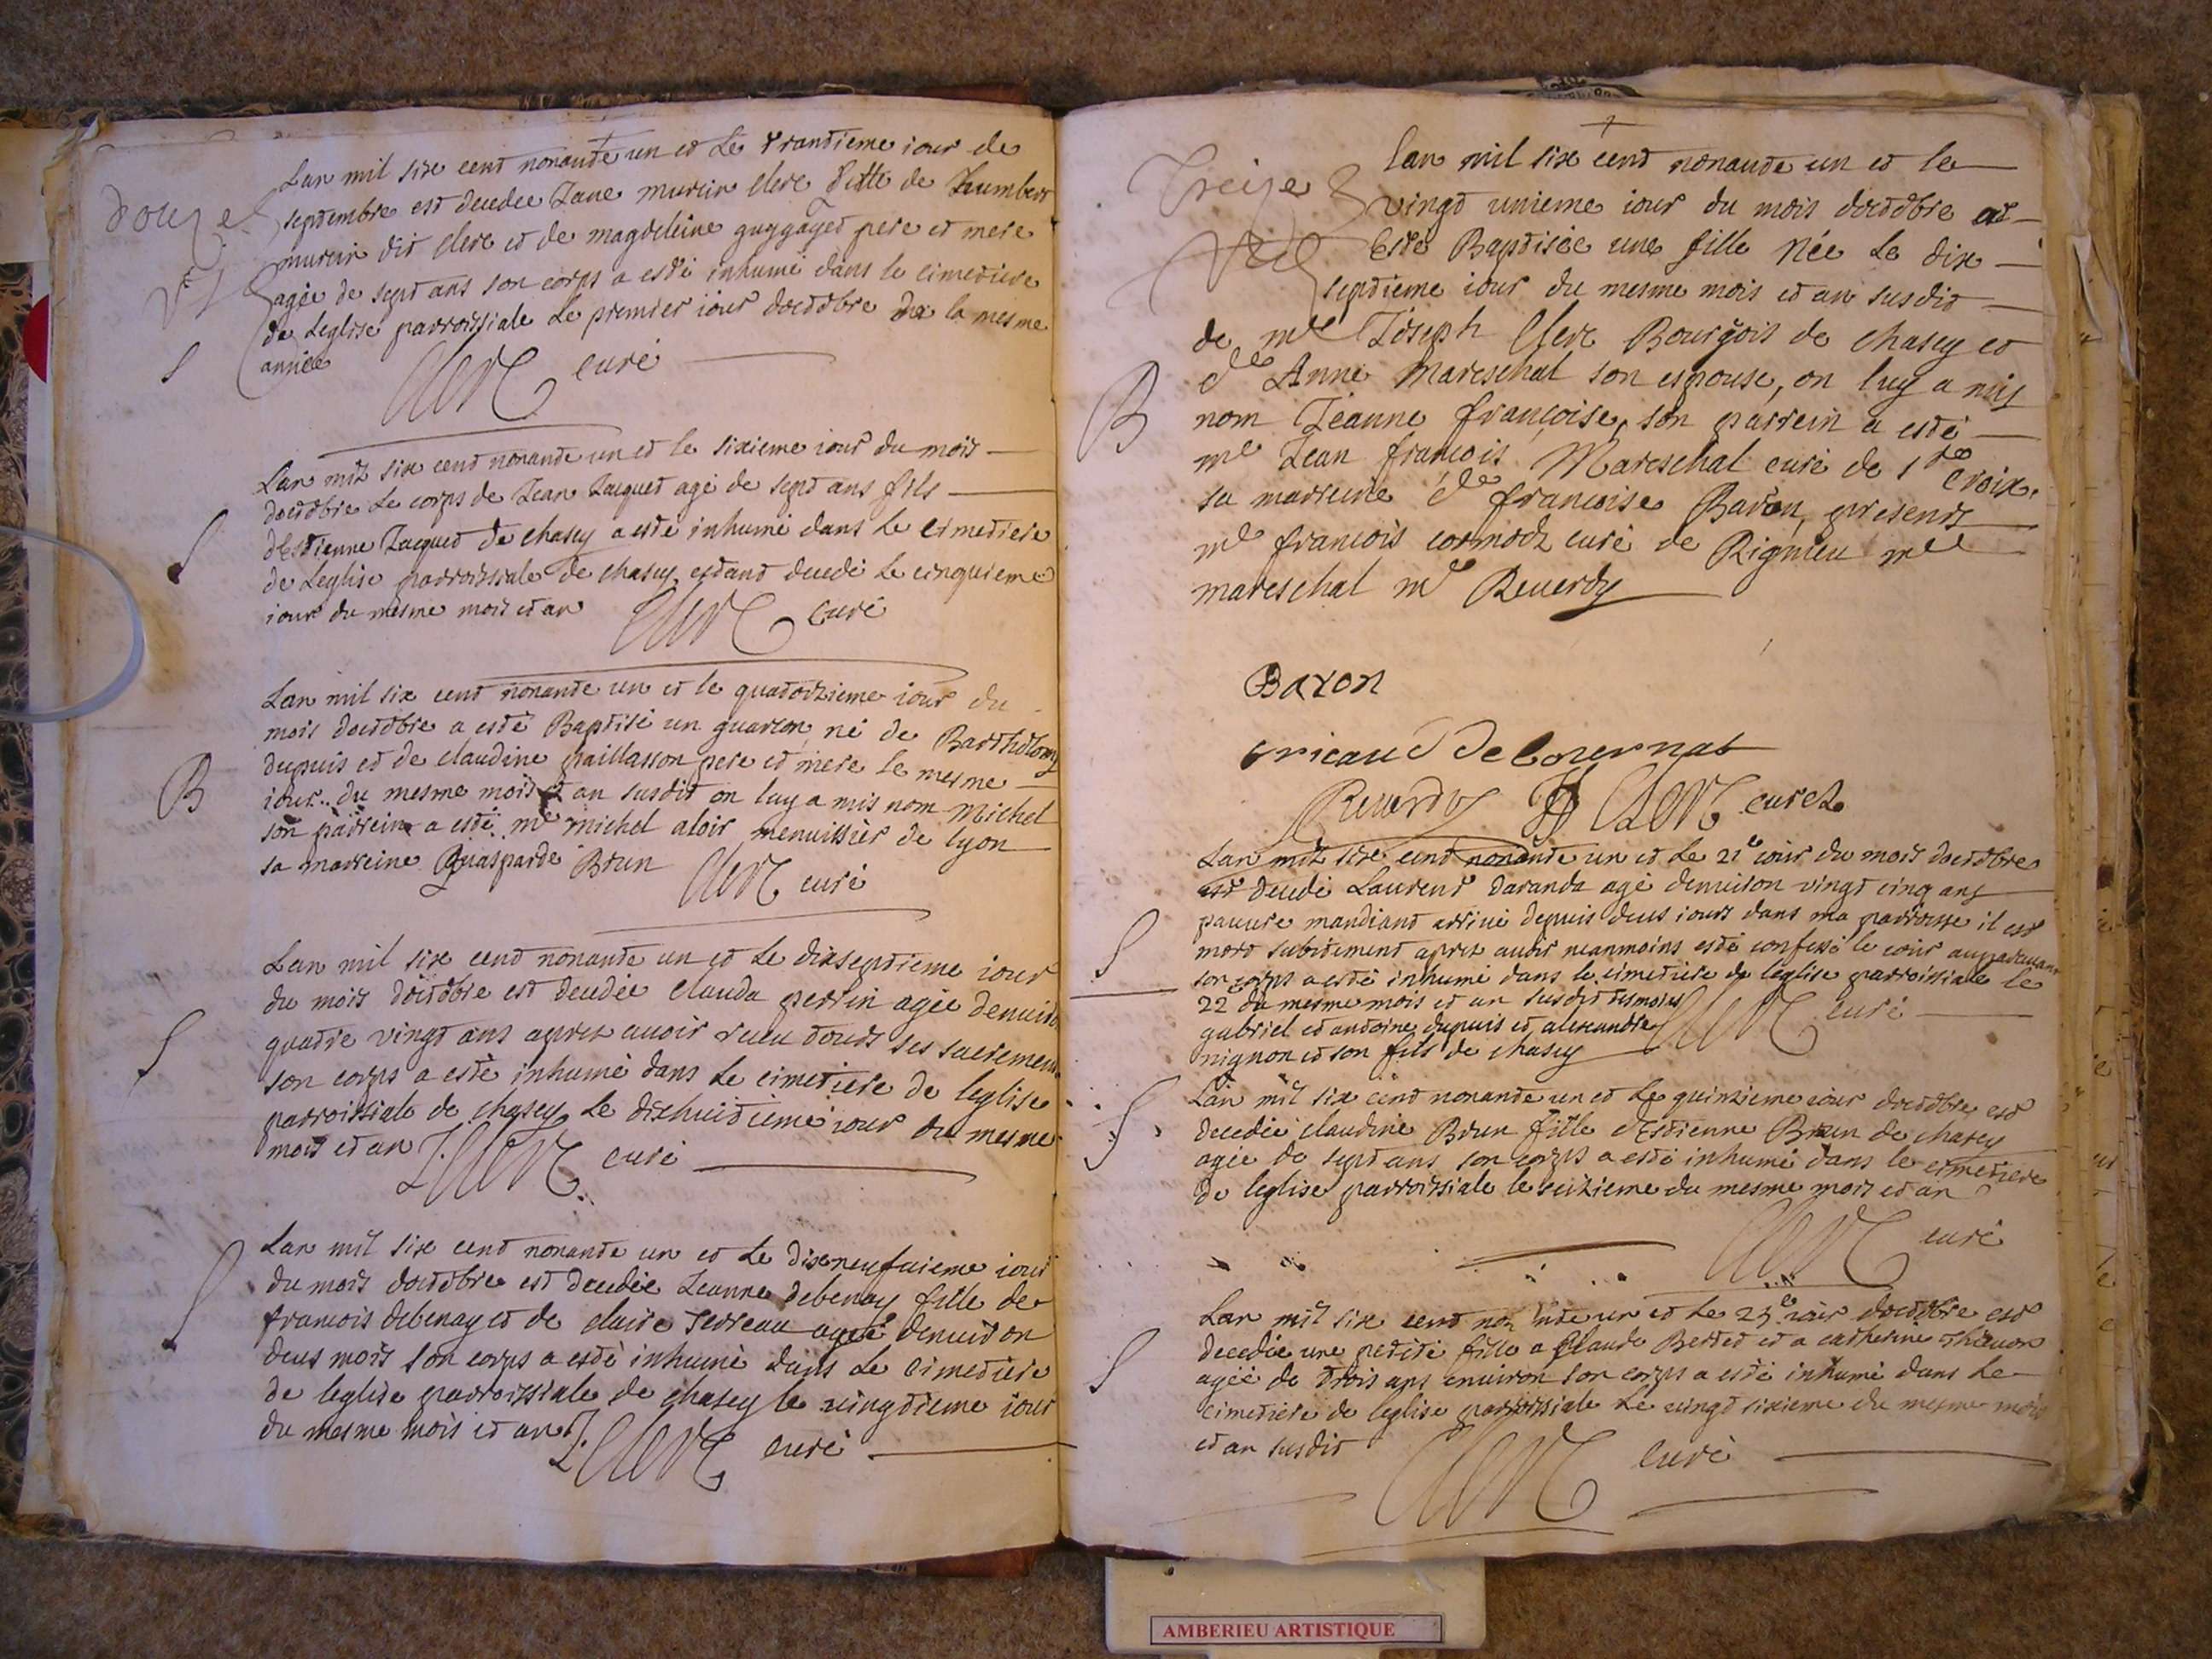 douze
Lan mil six cent nonante un et Le trantieme iour de
septembre est decedee Jane murcir clerc fille de humbert
murcir dit clerc et de magdeleine guygayed pere et mere
agée de sept ans son corps a esté inhumé dans le cimetiere
de Leglise parroissiale Le premier iour doctobre de la mesme
année
S
Clerc curé
Lan mil six cent nonante un et le sixieme iour du mois
doctobre Le corps de Jean Jacquet agé de sept ans fils
dEstienne Jacquet de chasey a esté inhumé dans Le cimetiere
de Leglise parroissiale de chasey estant decedé Le cinquieme
iour du mesme mois et an
Clerc curé
S
Lan mil six cent nonante un et le quatorzieme iour du
mois doctobre a esté Baptisé un guarcon né de Bartholomy
dupuis et de claudine paillasson pere et mere le mesme
iour du mesme mois et an susdit on luy a mis nom Michel
son parrein a esté mre michel aloir menuissier de lyon
sa marreine Guasparde Brun Clerc curé
B
Lan mil six cent nonante un et Le dixseptieme iour
du mois doctobre est decedée clauda perrin agée denuiron
quatre vingt ans apres auoir receu touts ses sacremens
son corps a esté inhumé dans Le cimetiere de leglise
parroissiale de chasey Le dixhuitieme iour du mesme
mois et an J. Clerc curé
S
Lan mil six cent nonante un et Le dixneufuieme iour
du mois doctobre est decedée Jeanne debenay fille de
francois debenay et de claire Terreau agée denuiron
deus mois son corps a esté inhumé dans Le cimetiere
de leglise parroissiale de chasey le vingtieme iour
du mesme mois et an J. Clerc curé
S
Treize
lan mil six cent nonante un et le
vingt unieme iour du mois doctobre at
Esté Baptisée une fille Née Le dix
septieme iour du mesme mois et an susdit
de mre Joseph Clerc Bourgois de chasey et
dlle Anne Mareschal son espouse, on luy a mis
nom Jeanne francoise, son parrein a esté
mre Jean francois Mareschal curé de ste croix.
sa marreine dlle francoise Baron, presents
mre francois cormodz curé de Rignieu mre
mareschal mr Reuerdy
B
Baron
Reuerdy Clerc curé
Lan mil six cent nonante un et Le 21e iour du mois doctobre
est decedé Laurent Daranda agé denuiron vingt cinq ans
pauure mandiant arriué depuis deus iours dans ma parroisse il est
mort subitement apres auoir neanmoins esté confessé le iour auparauant
son corps a esté inhumé dans le cimetiere de leglise parroissiale le
22 du mesme mois et an susdit tesmoins
gabriel et antoine dupuis et alexandre
nignon et son fils de chasey
Clerc curé
S
Lan mil six cent nonante un et Le quinzieme iour doctobre est
decedée claudine Brun fille dEstienne Brun de chasey
agée de sept ans son corps a esté inhumé dans le cimetiere
de leglise parroissiale le seizieme du mesme mois et an
Clerc curé
S
Lan mil six cent nonante un et Le 25e iour doctobre est
decedée une petite fille a Claude Bertet et a catherine Theuenon
agée de trois ans enuiron son corps a esté inhumé dans Le
cimetiere de leglise parroissiale Le vingt sixieme du mesme mois
et an susdit
Clerc curé
S
AMBERIEU ARTISTIQUE